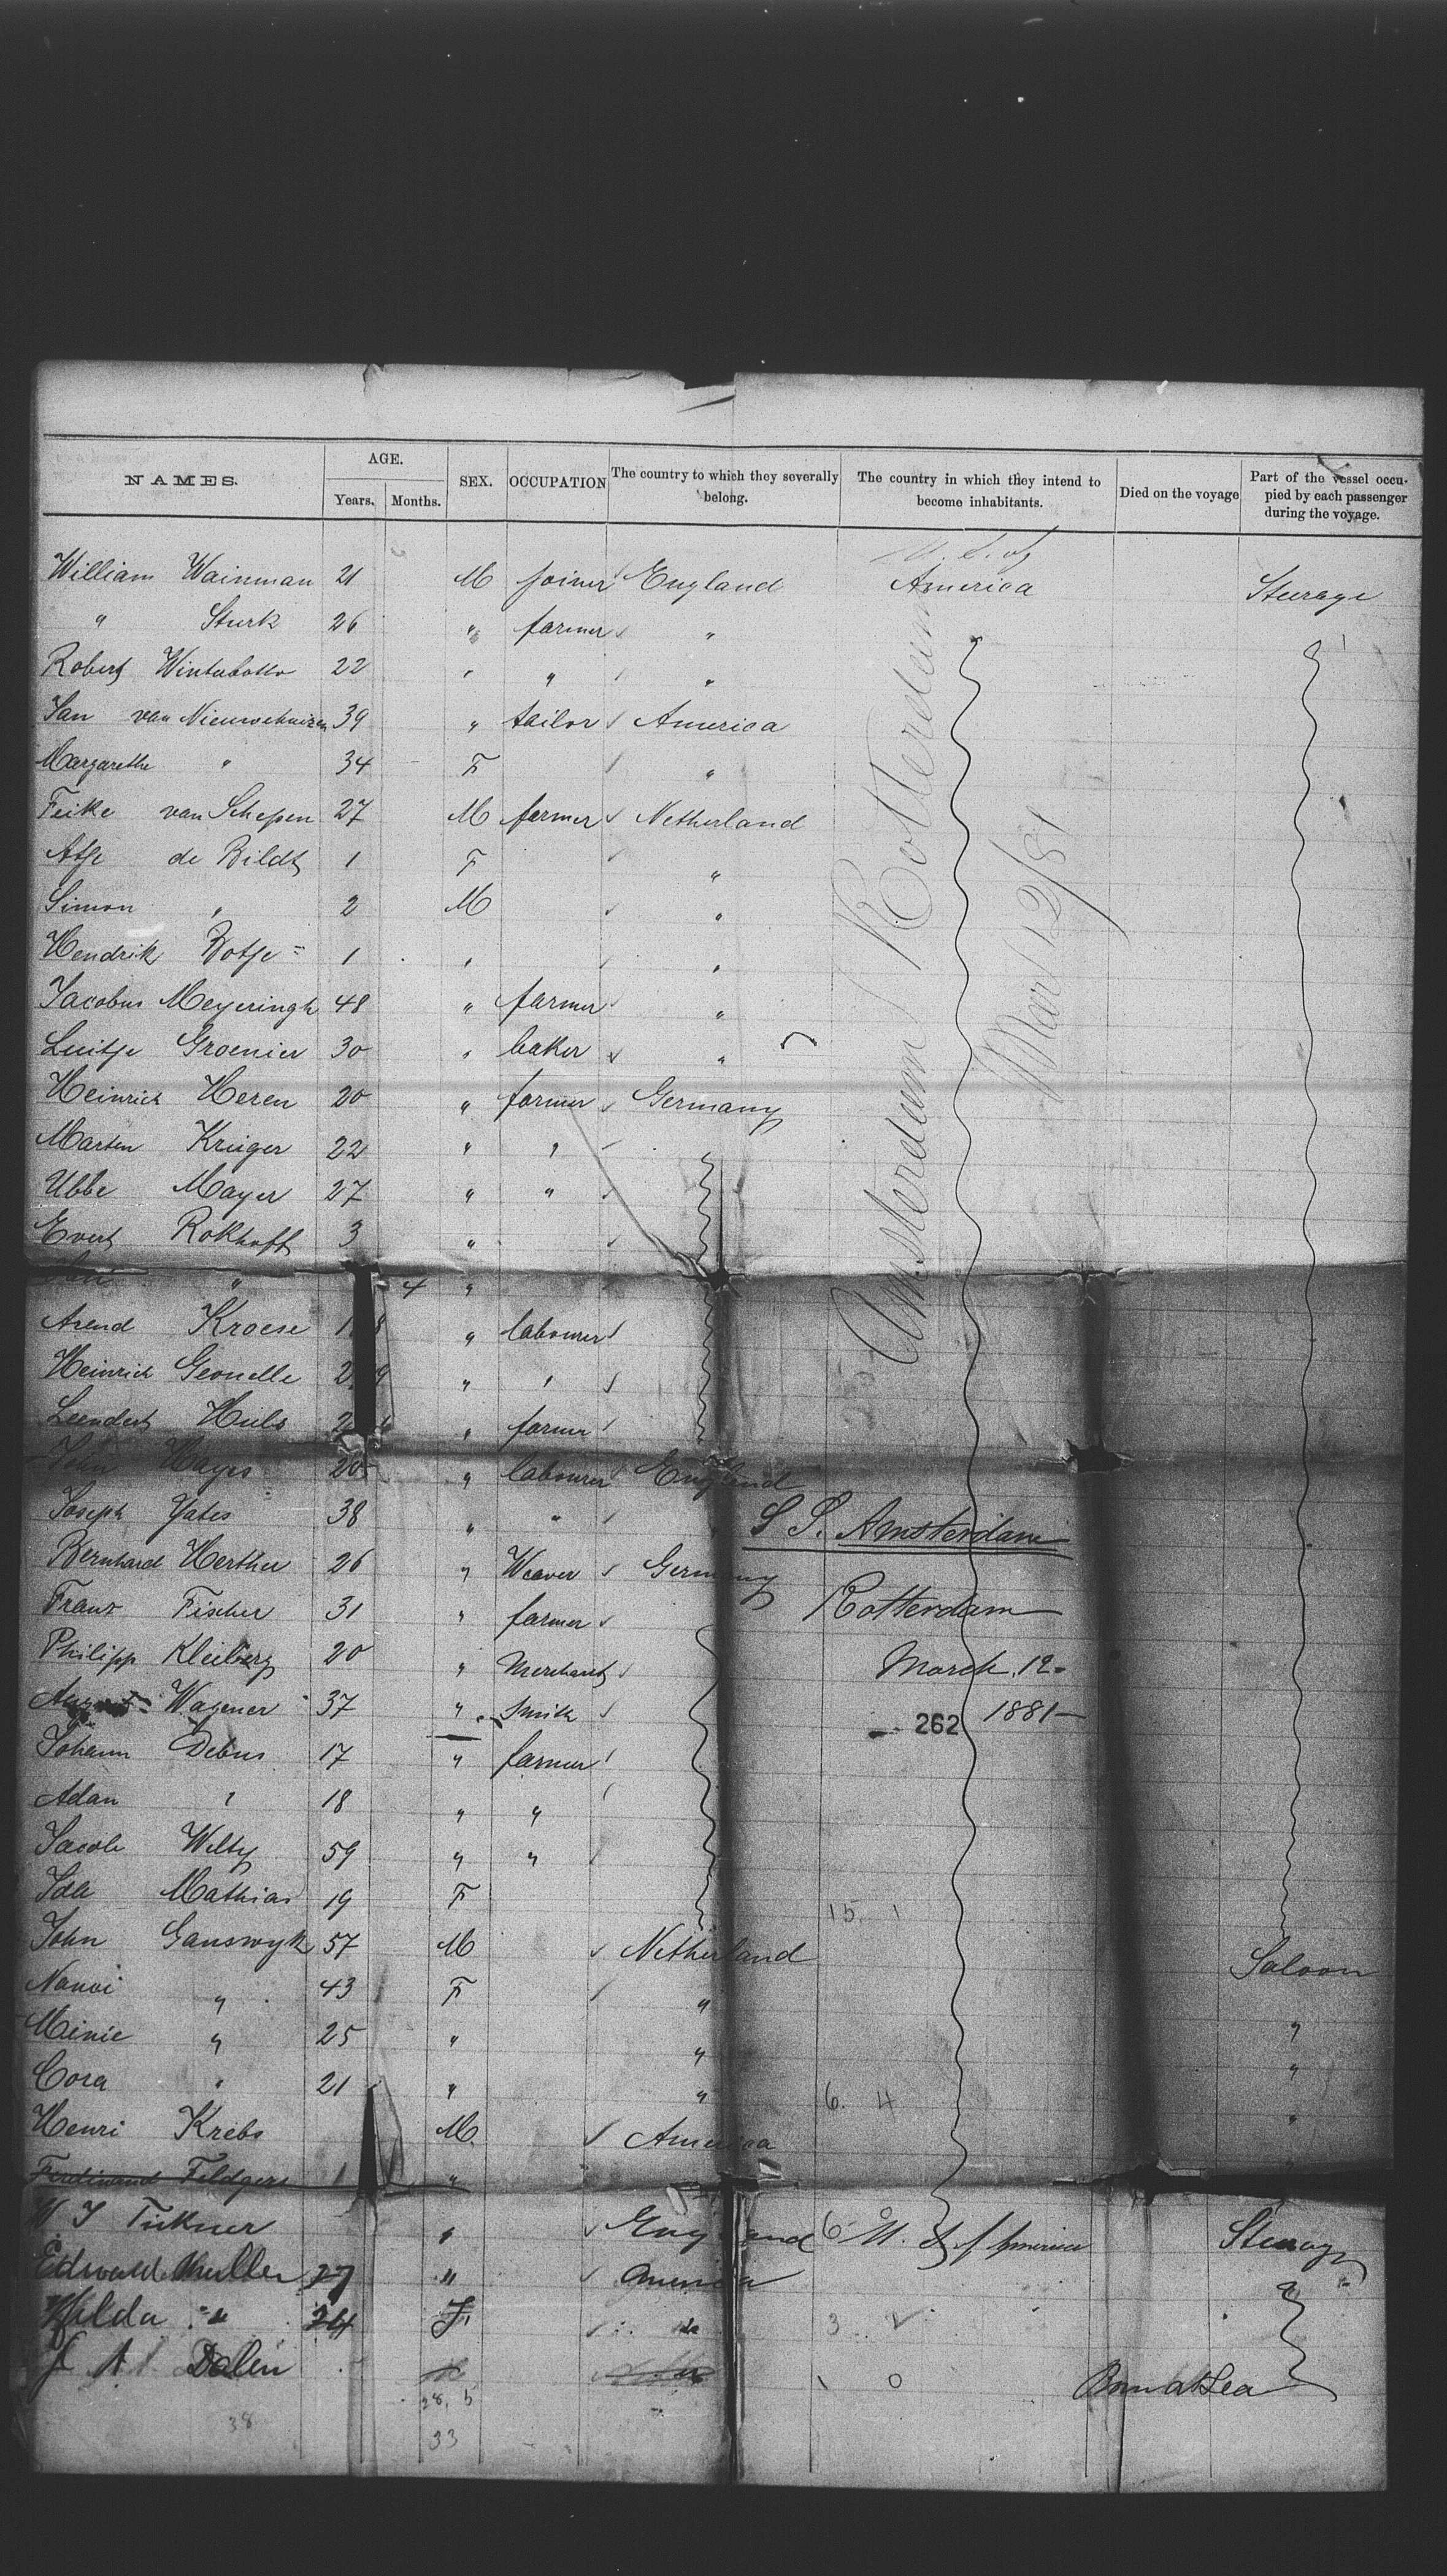 NAMES. AGE. Years. Months. SEX. OCCUPATION The country to which they severally belong. The country in which they intend to become inhabitants. Died on the voyage Part of the vessel occupied by each passenger during the voyage.
U. S. of
William Wainman 21 M joiner England America Steerage
" Sturk 26 " farmer "
Robert 22 " " "
Jan van Nieuwehuizen 39 " tailor America
Margarethe " 34 F "
Feike van Schepen 27 M farmer Netherland
Atje de Bildt 1 F "
Simon " 2 M "
Hendrik Botje 1 " "
Jacobus Meyeringh 48 " farmer "
Luitje Groenier 30 " baker "
Heinrich Heren 20 " farmer Germany
Marten Krüger 22 " "
Ubbe Mayer 27 " "
Evert Rokhoff 3 "
" 4 "
Arend Kroese 18 " labourer
Heinrich Geonelle 29 " "
Leendert Huls " farmer
John Hayes 20 " labourer England
Joseph Yates 38 " "
Bernhard Herther 26 " Weaver Germany
Franz Fischer 31 " farmer
Philipp Kleiberg 20 " Merchant
August Wagener 37 " Smith
Johann Debus 17 " farmer
Adam " 18 " "
Jacob Welty 59 " "
Ida Mathias 19 F
15. 1
John Ganswyk 57 M Netherland Saloon
Nanni " 43 F "
Minie " 25 " " "
Cora " 21 " " "
6. 4
Henri Krebs M America "
Ferdinand Feldger 1 "
W J Tickner " England 6 U. S. of America Steerage
Edward Muller 27 " America
Hilda " 24 F " 3 2
J A Dalen 1 0 Born at Sea
28. 5
38 33
Amsterdam / Rotterdam
Mar 12/81
S S. Amsterdam
Rotterdam
March. 12-
1881-
262